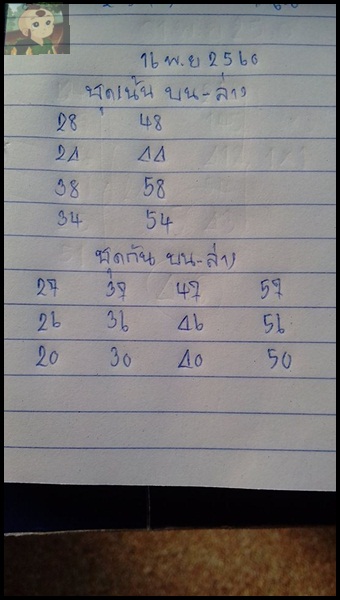 16 พ.ย 2560
ชุดเน้น บน-ล่าง
28 48
24 44
38 58
34 54
ชุดกัน บน-ล่าง
27 37 47 57
26 36 46 56
20 30 40 50